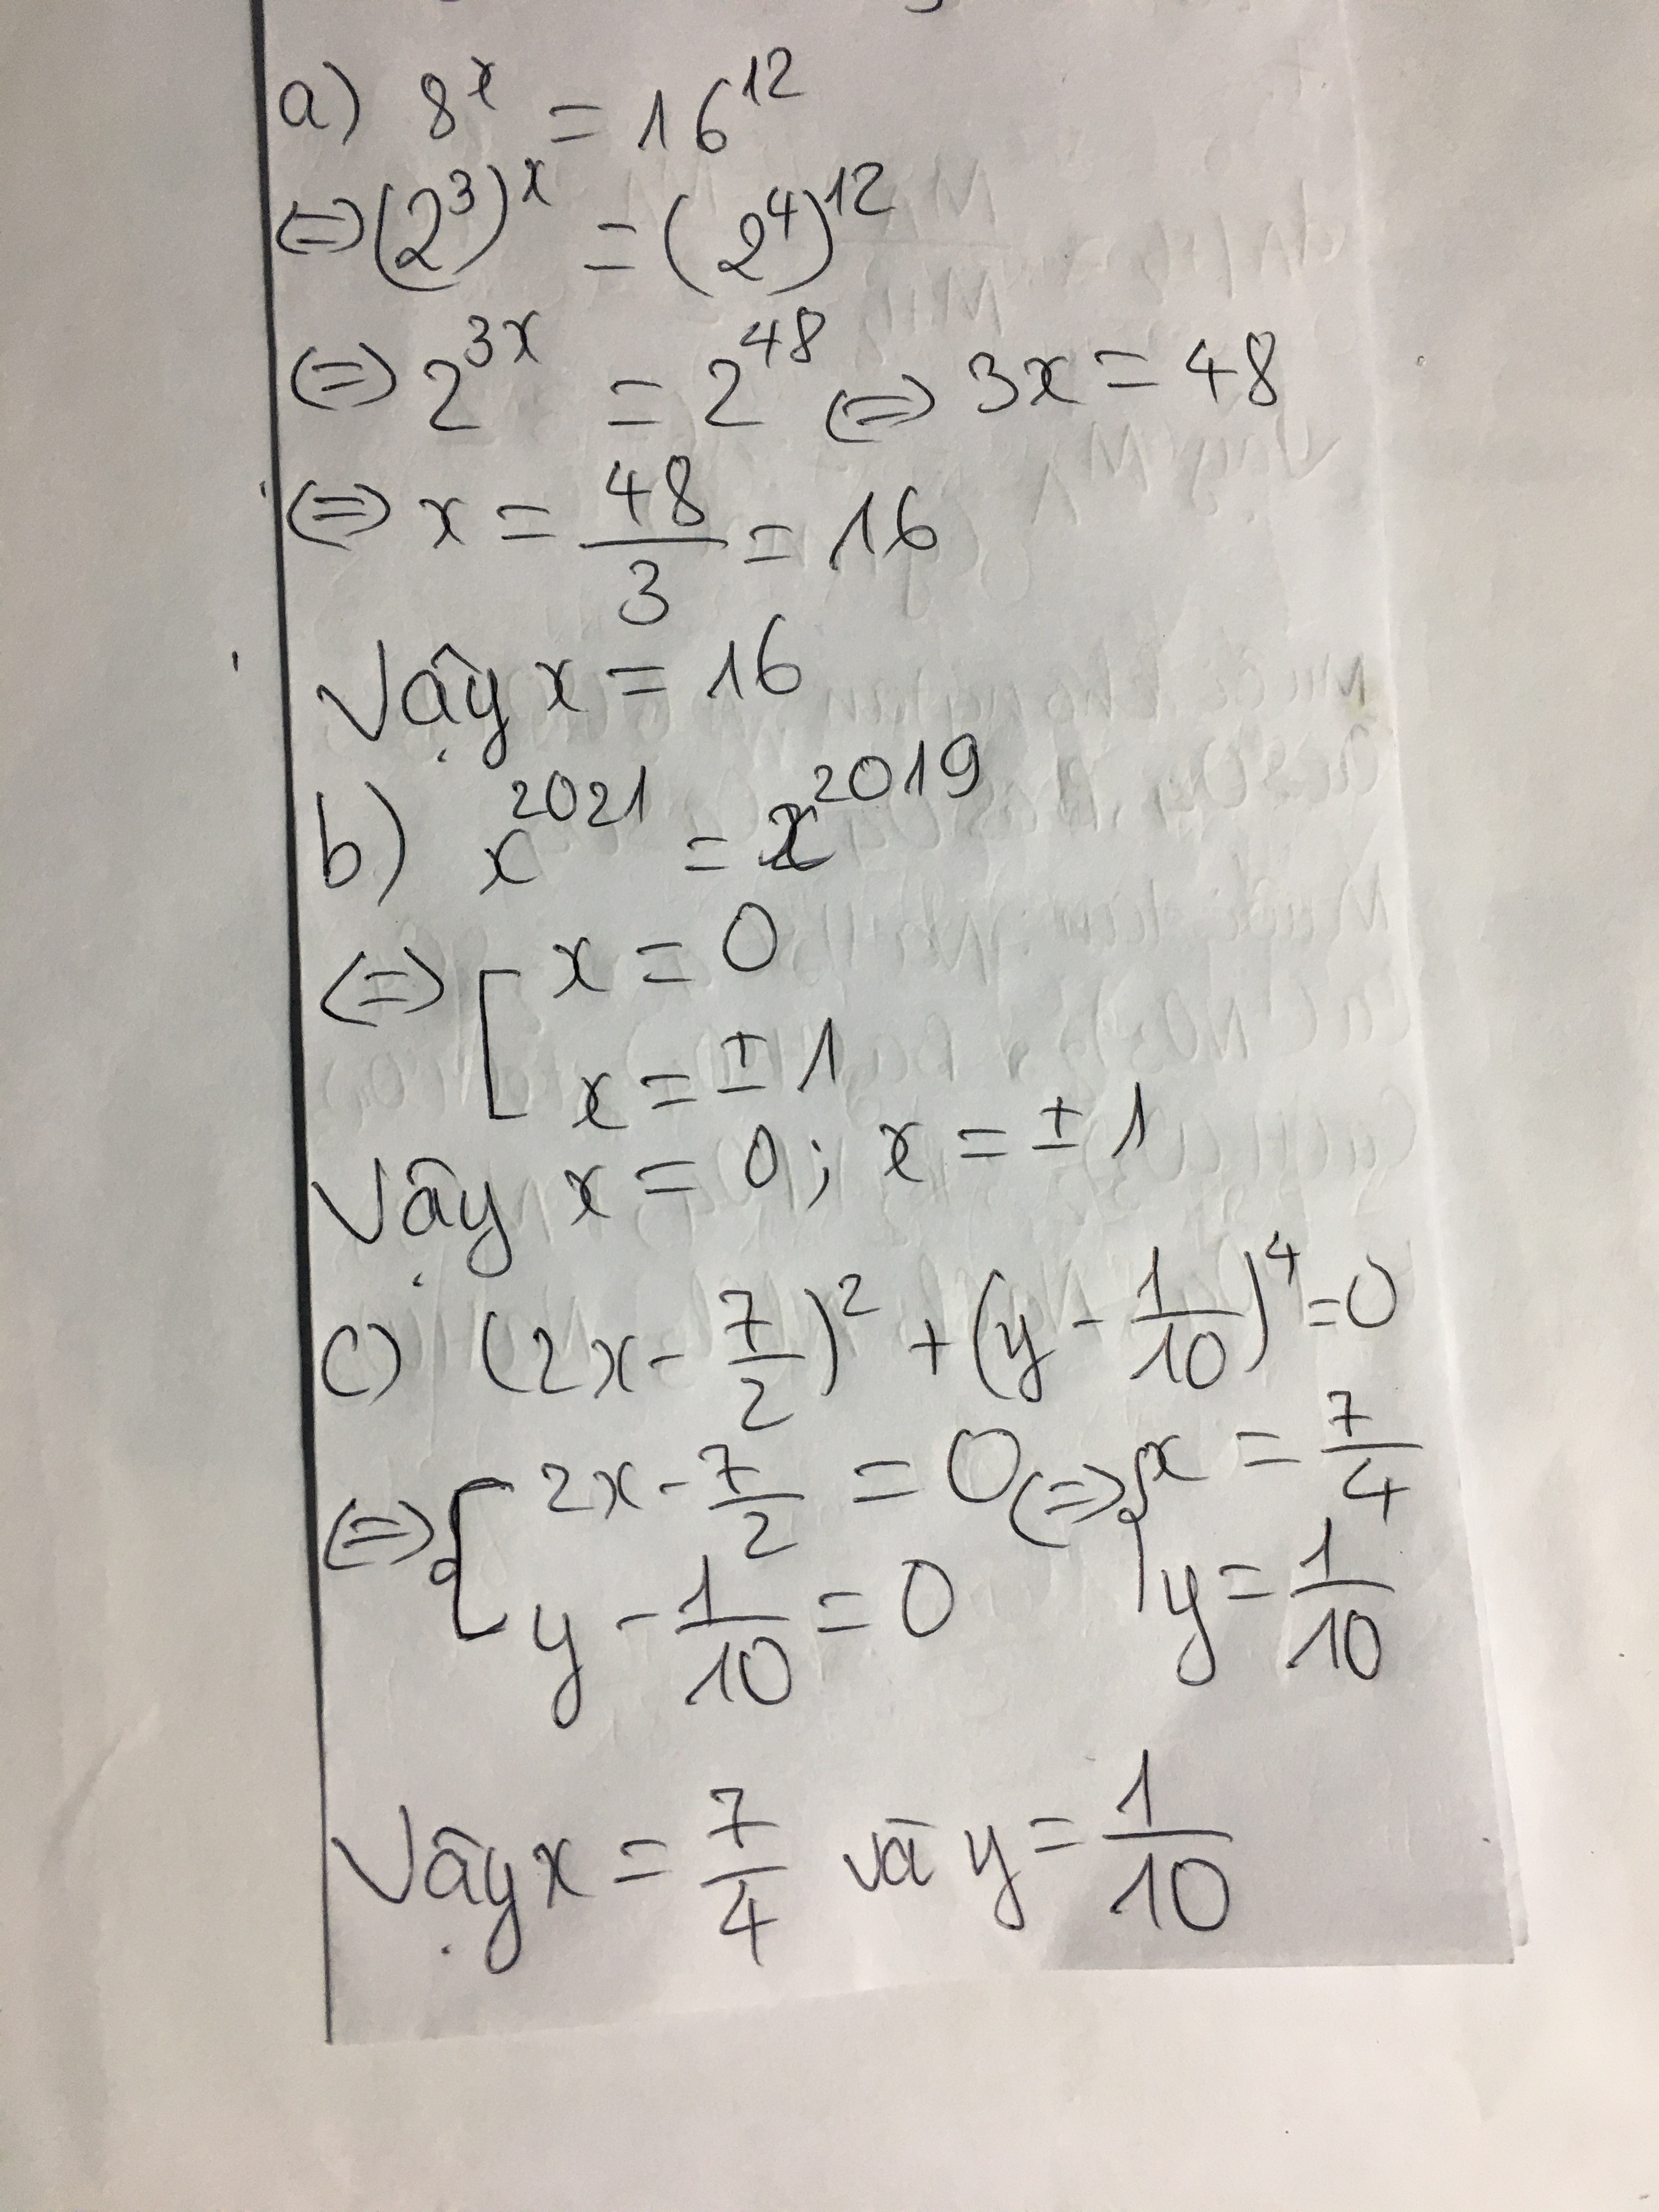 a) 8^x = 16^12
⇔ (2^3)^x = (2^4)^12
⇔ 2^3x = 2^48 ⇔ 3x = 48
⇔ x = 48/3 = 16
Vậy x = 16
b) x^2021 = x^2019
⇔ [ x = 0
x = ± 1
Vậy x = 0; x = ± 1
c) (2x - 7/2)^2 + (y - 1/10)^4 = 0
⇔ { 2x - 7/2 = 0 ⇔ { x = 7/4
y - 1/10 = 0 y = 1/10
Vậy x = 7/4 và y = 1/10